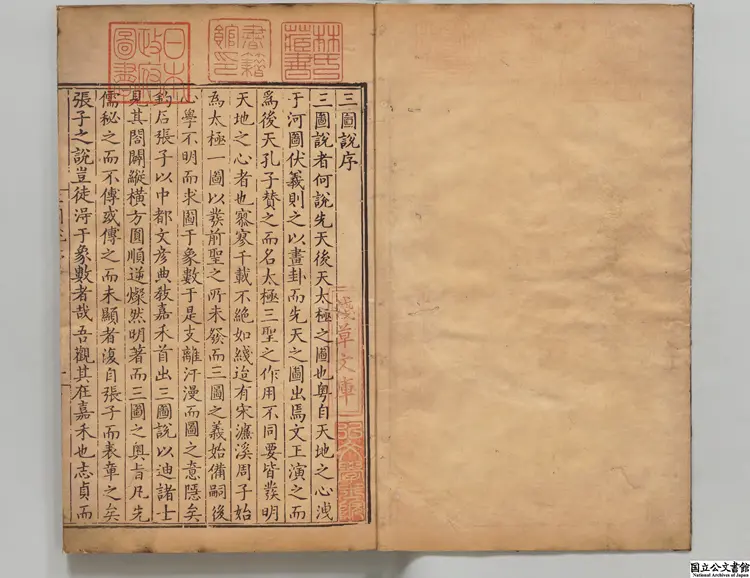 三圖說序
三圖說者何說先天後天太極之圖也粵自天地之心洩
于河圖伏羲則之以畫卦而先天之圖出焉文王演之而
爲後天孔子賛之而名太極三聖之作用不同要皆發明
天地之心者也寥寥千載不絕如綫迨有宋濂溪周子始
為太極一圖以發前聖之所未發而三圖之義始備嗣後
心學不明而求圖于象數于是支離汗漫而圖之意隱矣
釣石張子以中都文彥典敎嘉禾首出三圖說以迪諸士
見其闔闢縱橫方圓順逆燦然明著而三圖之奧旨凡先
儒秘之而不傳或傳之而未顯者復自張子而表章之矣
張子之說豈徒淂于象數者哉吾觀其在嘉禾也志貞而
日本政府圖書
書籍館印
林氏藏書
淺草文庫
国立公文書館
National Archives of Japan